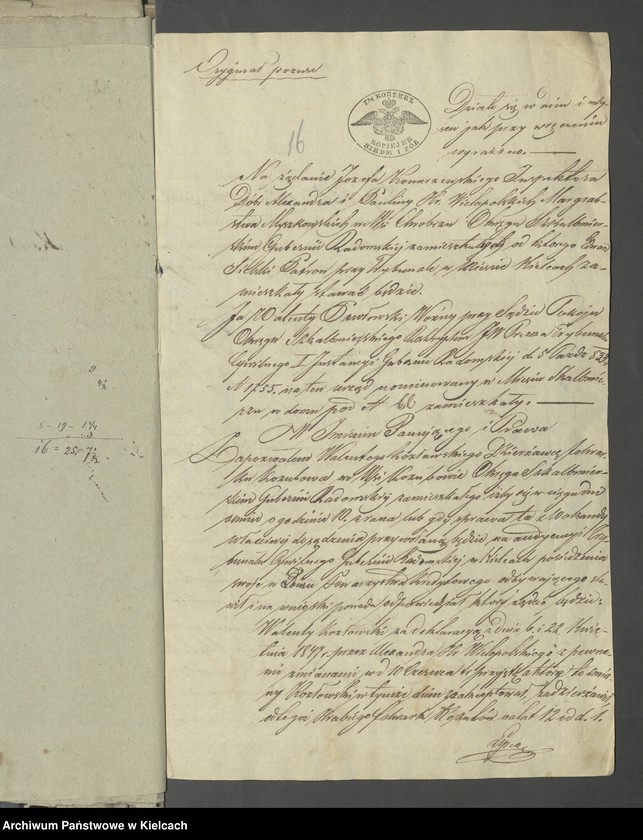 Oryginał pozwu
7½ KOPIEK
KOPIEJEK
SIEDM I PÓŁ
16
Działo się w dniu i miejscu
jak przy wręczeniu
wyrażono.
Na żądanie Józefa Konarzewskiego Inspektora
Dóbr Alexandra i Pauliny Hr. Wielopolskich Margrab-
stwa Myszkowskich we Wsi Chrobrzu Okręgu Szkalbmier-
skim Gubernii Radomskiej zamieszkałych od którego
Patron przy Trybunale, w Mieście Kielcach za-
mieszkały stawać będzie.
Ja Walenty Pawłowski, Woźny przy Sądzie Pokoju
Okręgu Szkalbmierskiego Reskryptem JW Prezesa Trybunału
Cywilnego I Instancyi Gubernii Radomskiej d. 5
N 1755. na ten urząd nominowany w Mieście Skalbmie-
rzu w domu pod N 66 zamieszkały.
W Imieniu Panującego i Prawa
Zapozwałem Walentego Kozłowskiego Dzierżawcę folwar-
ku Kozubowa we Wsi Kozubowie Okręgu Szkalbmier-
skim Gubernii Radomskiej zamieszkałego iżby się w ciągu dni
ośmiu o godzinie 10. z rana lub gdy sprawa ta z wokandy
właściwej do sądzenia przywołaną będzie, na audyencyi Try-
bunału Cywilnego Gubernii Radomskiej w Kielcach posiedzenia
swoje w Domu Towarzystwa Kredytowego odbywającego sta-
wił i na wnioski powoda odpowiadał który żądać będzie:
Walenty Kozłowski za deklaracyą z dnia 6. i 22. Kwie-
tnia 1847 r. przez Alexandra Hr. Wielopolskiego z pewne-
mi zmianami, w d 10 Czerwca t. r. przyjętą a którą to zmia-
ny Kozłowski w tymże dniu zaakceptował, zadzierżawił
od tegoż Hrabiego folwark na lat 12 od d. 1.
5 - 19 - 17½
16 = 25
Archiwum Państwowe w Kielcach